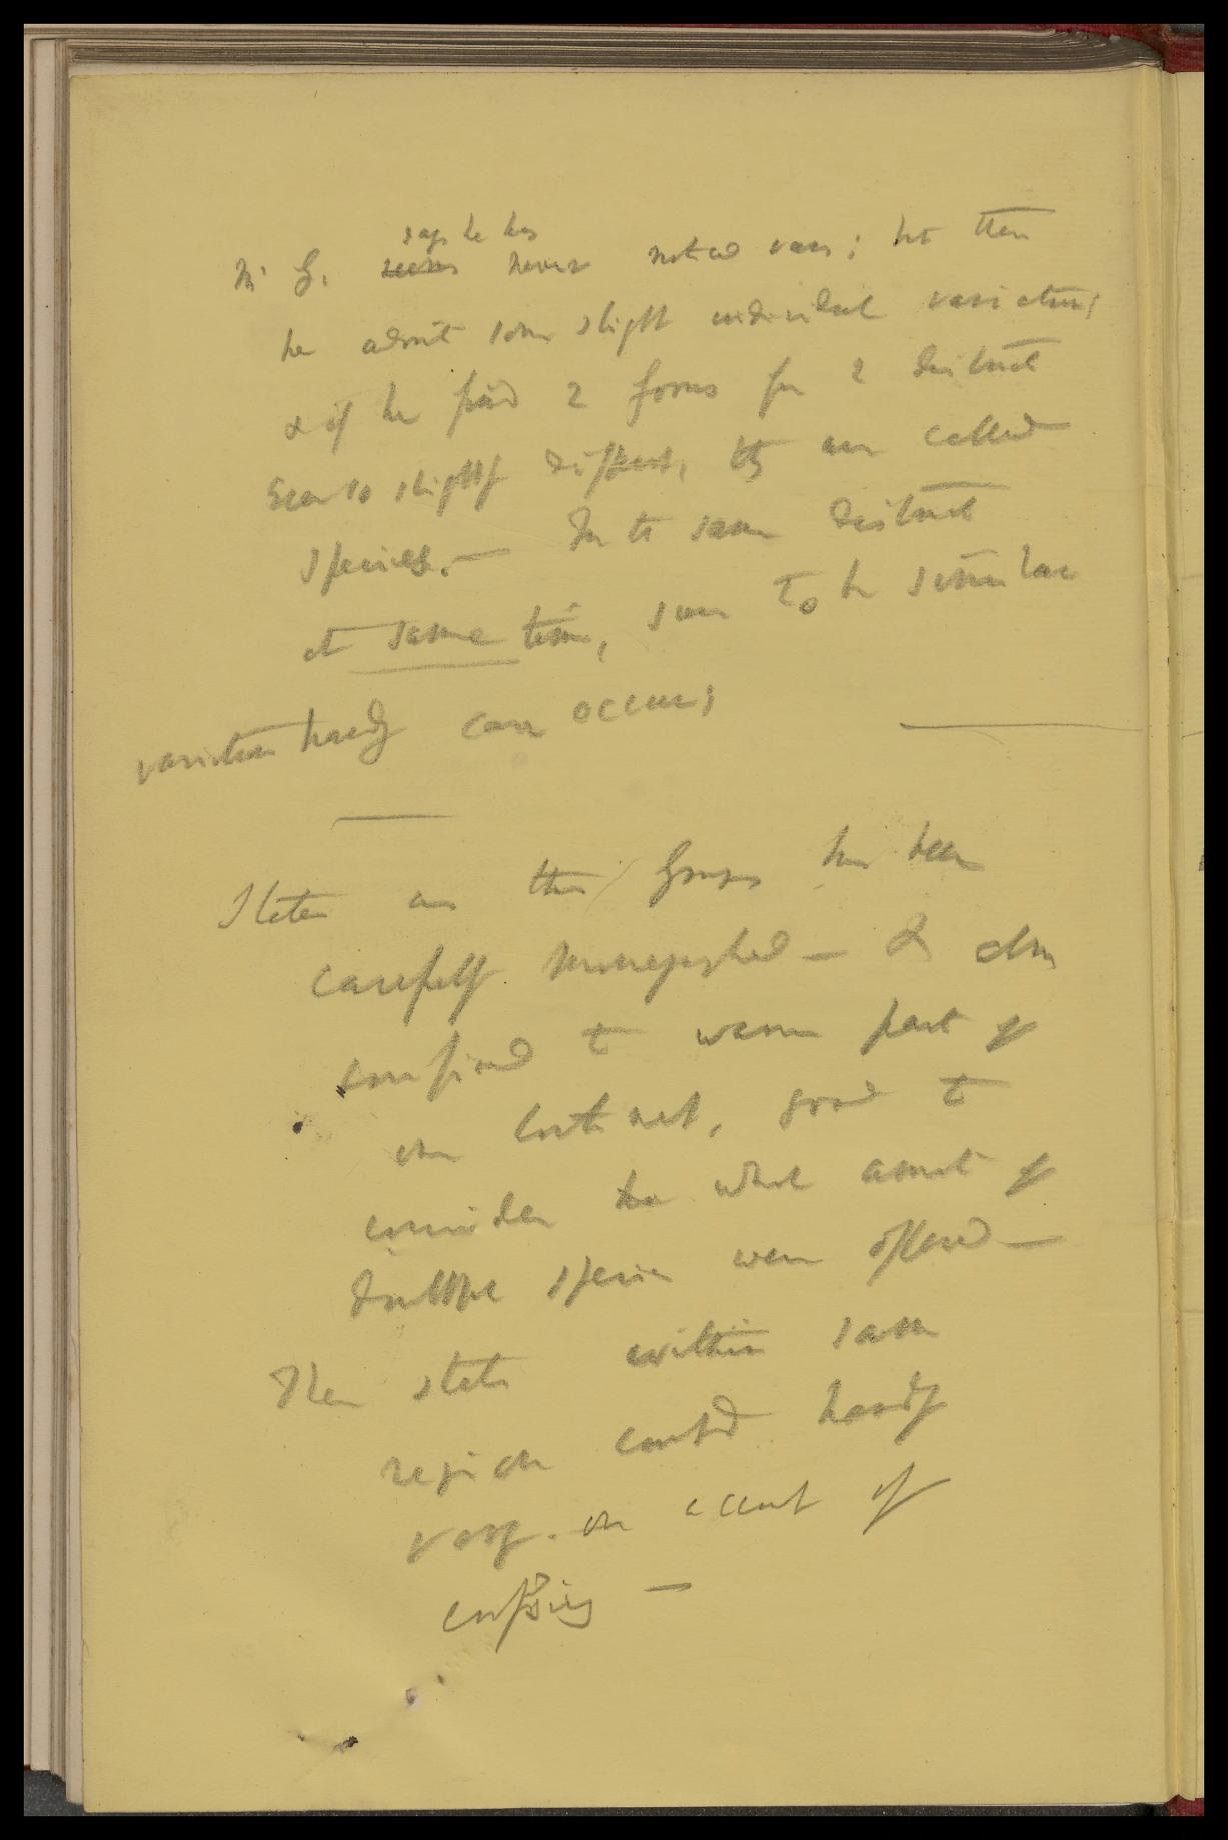 says he has
Mr G. seems never noticed vars; but then
he admit some slight individual variations
& if he find 2 forms for 2 district
ever so slightly different, they are called
species.— In the same district
at same time, seem to be similar
variation hardly can occur;
State as this Groups has been
carefully monographed — & also
confined to warm part of
one continent, good to
consider the whole amount of
doubtful species were
Then state within same
region could hardly
vary. on account of
crossing —